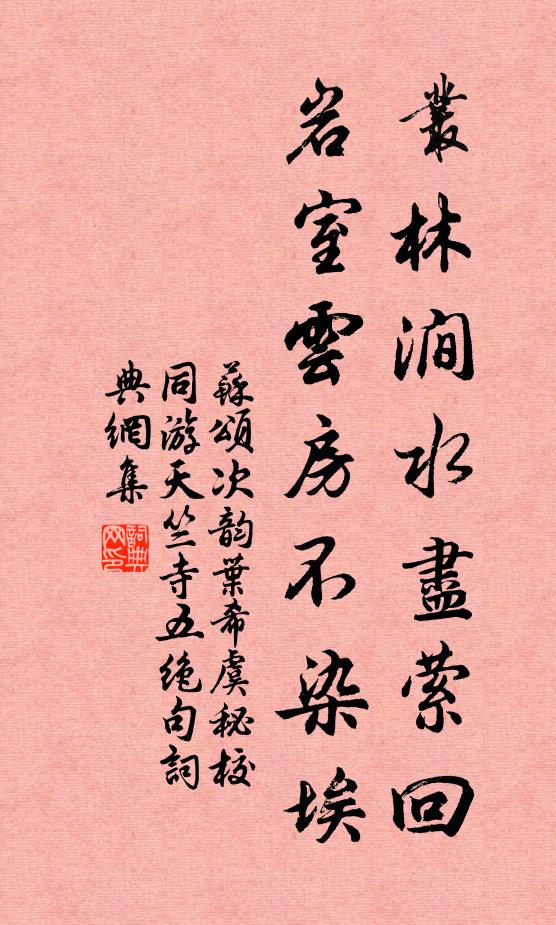 叢林澗水盡萦回
岩室雲房不染埃
蘇頌次韵葉希虞秘校
同游天竺寺五绝句詞
典網集
詞典
网印